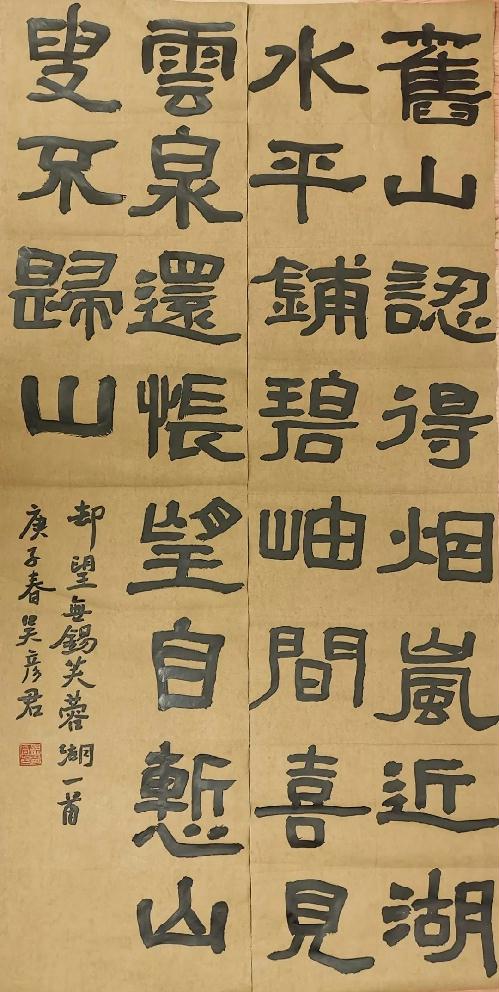 舊山認得烟嵐近湖
水平鋪碧岫間喜見
雲泉還悵望自慙山
叟不歸山
却望無錫芙蓉湖一首
庚子春吳彦君